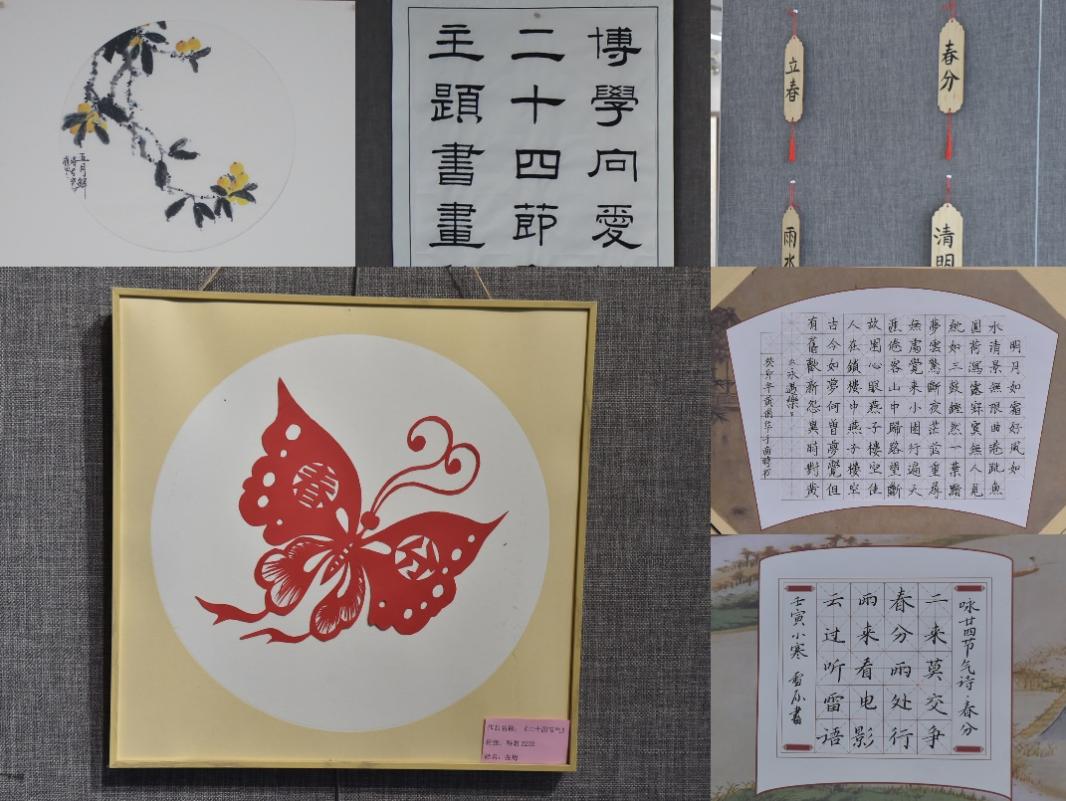 五月鲜
博學向愛
二十四節
主題書畫
立春
春分
雨水
清明
明月如霜好風如
水清景無限曲港跳魚
圓荷瀉露寂寞無人見
紞如三鼓鏗然一葉黯
夢雲驚斷夜茫茫重尋
無處覺來小園行遍天
涯倦客山中歸路望斷
故園心眼燕子樓空佳
人在鎖樓中燕子樓空
古今如夢何曾夢覺但
有舊歡新怨異時對黃
永遇樂
癸卯年
春
作品名称：《二十四节气》
班级：特教2232
姓名：
咏廿四节气诗·春分
二来莫交争
春分雨处行
雨来看电影
云过听雷语
壬寅小寒